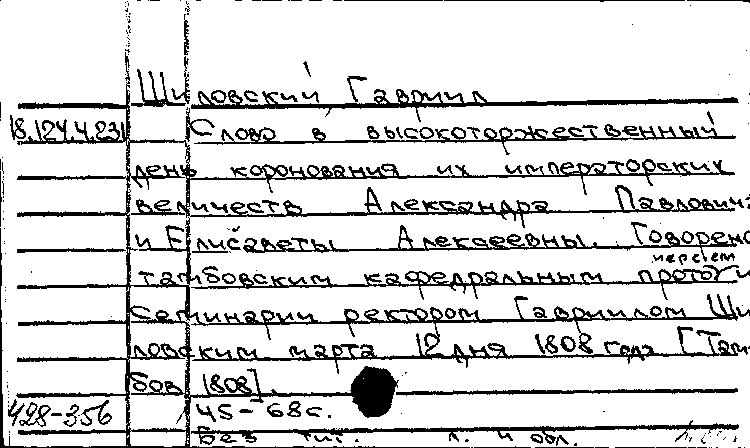 Шиловский Гавриил
18.124.4.231 Слово в высокоторжественный
день коронования их императорских
величеств Александра Павловича
и Елисаветы Алексеевны. Говорено
тамбовским кафедральным протоиереем и
семинарии ректором Гавриилом Ши
ловским марта 12 дня 1808 года [Там
бов 1808].
428-356 45-68с.
Без тит. л. и обл.